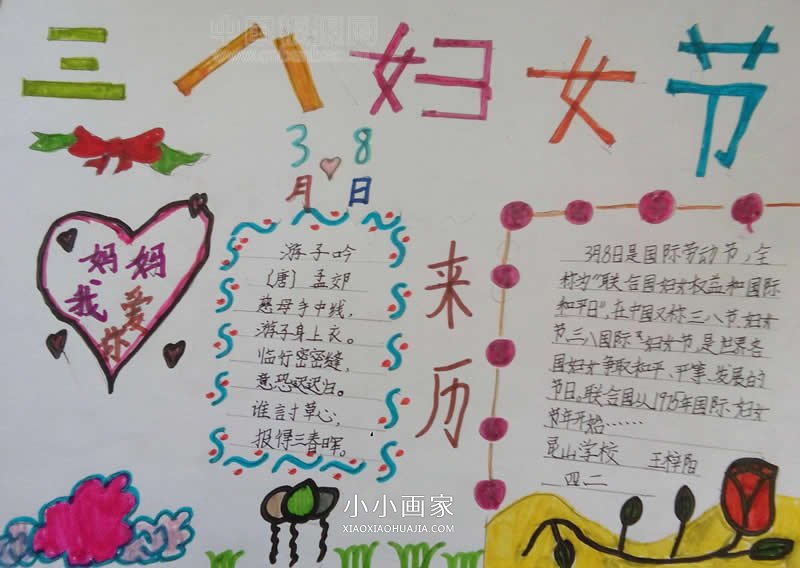 三八妇女节
3 8
月 日
妈妈
我爱
你
游子吟
〔唐〕孟郊
慈母手中线,
游子身上衣。
临行密密缝,
意恐迟迟归。
谁言寸草心,
报得三春晖。
来
历
3月8日是国际劳动节,全
称为“联合国妇女权益和国际
和平日”,在中国又称三八节、妇女
节、三八国际妇女节,是世界各
国妇女争取和平、平等、发展的
节日。联合国从1975年国际妇女
年开始……
昆山学校 王梓阳
四二
小小画家
XIAOXIAOHUAJIA.COM